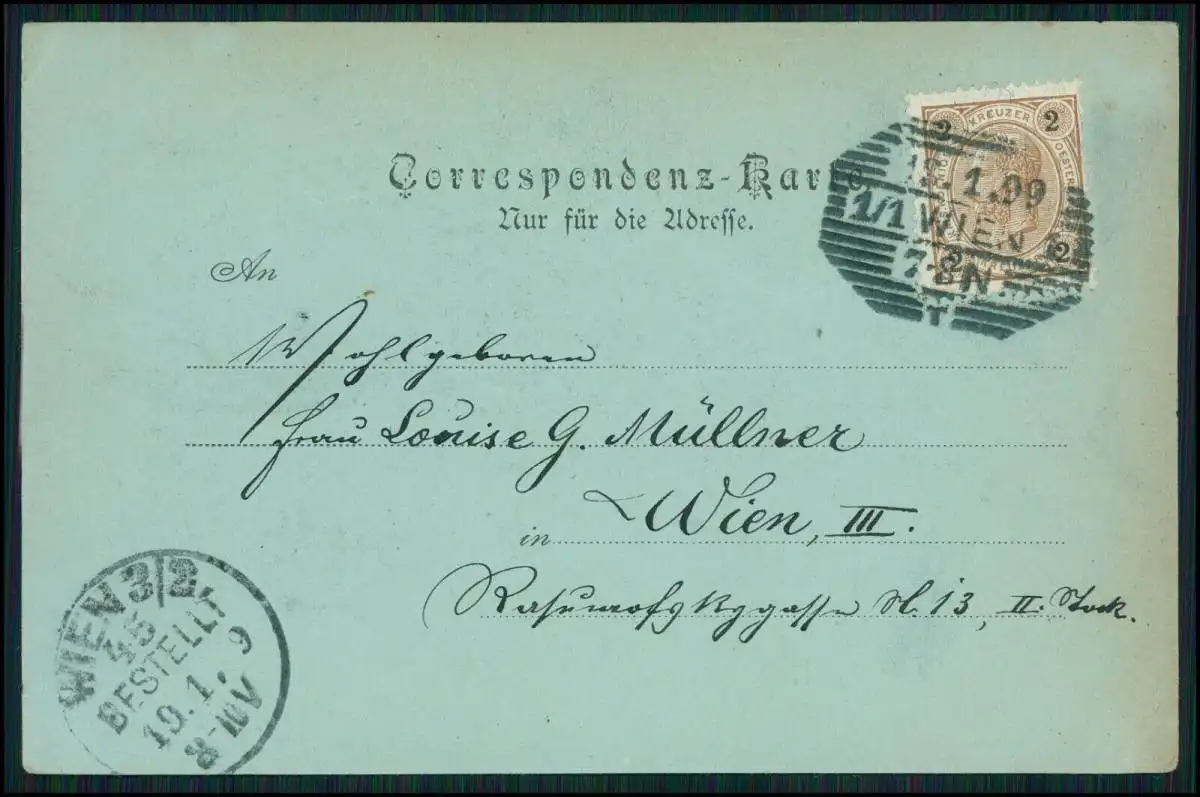 Correspondenz-Karte
Nur für die Adresse.
2 KREUZER 2
2 2
1.99
1/1 WIEN
7-8N
T
An
Wohlgeboren
Frau Louise G. Müllner
in Wien, III.
Rasumofskygasse N. 13, II. Stock.
WIEN 3/2
45
BESTELLT
19.1.9
8-10V